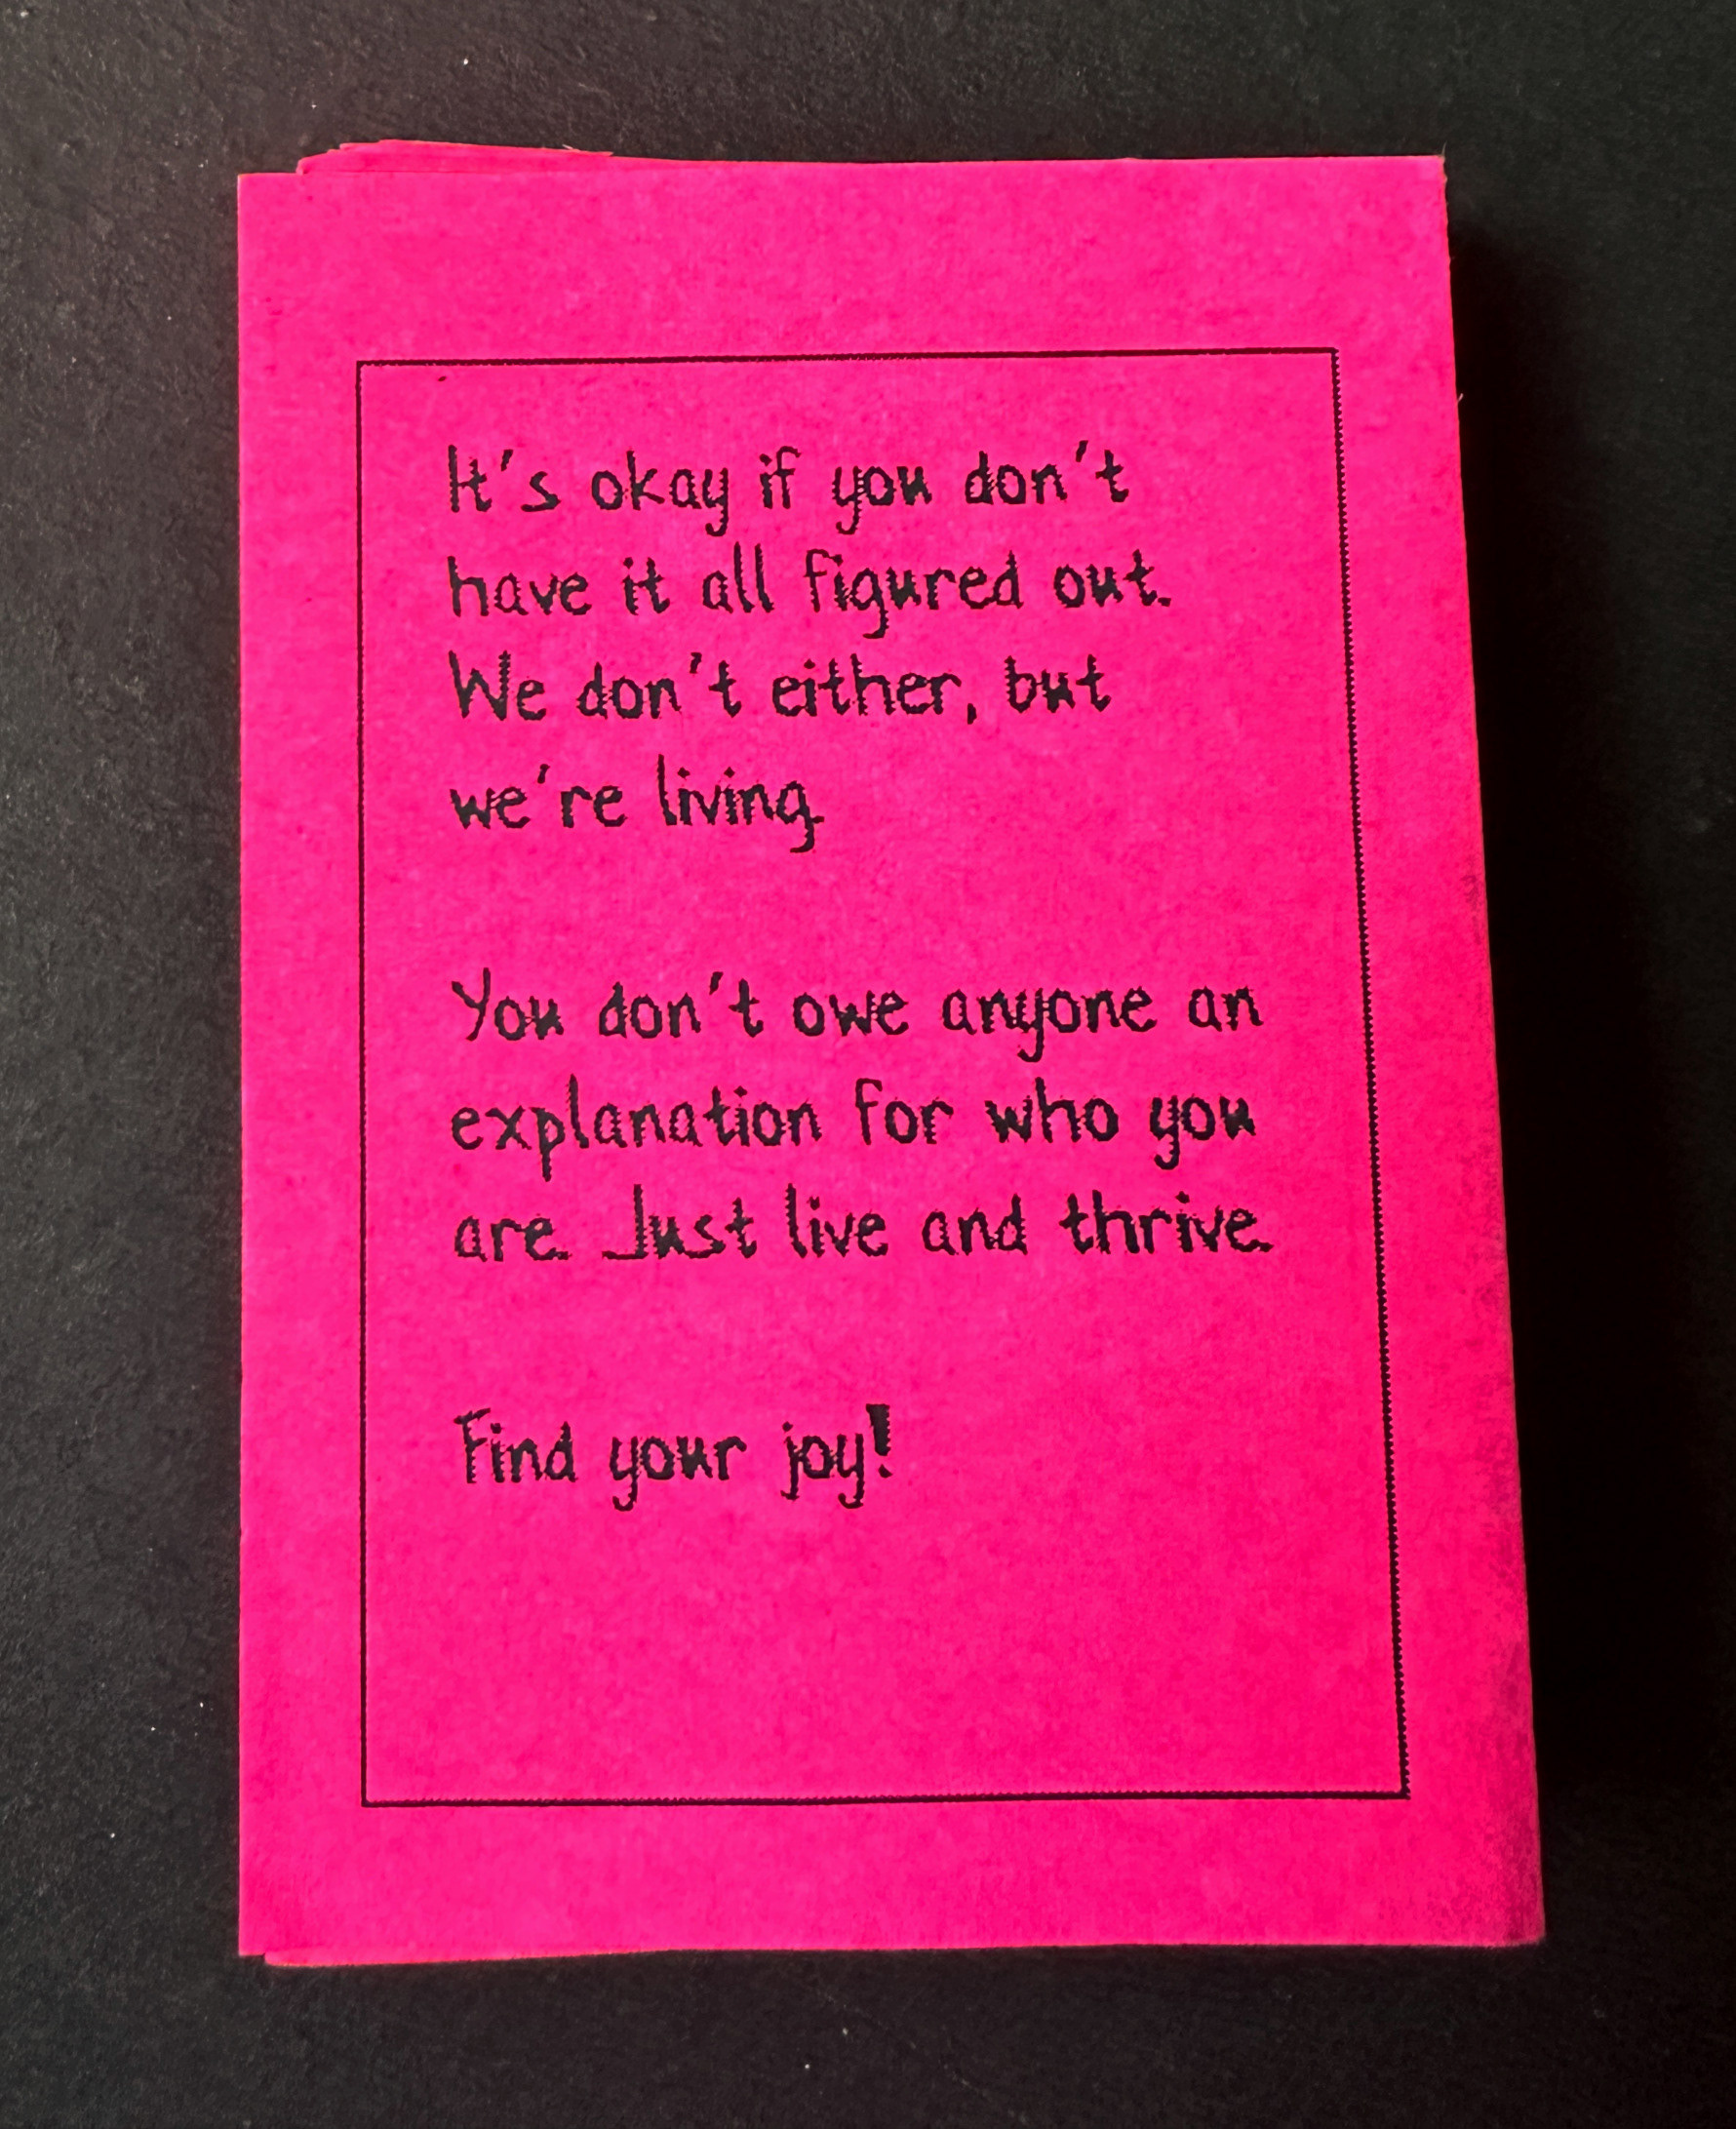 It's okay if you don't
have it all figured out.
We don't either, but
we're living.
You don't owe anyone an
explanation for who you
are. Just live and thrive.
Find your joy!